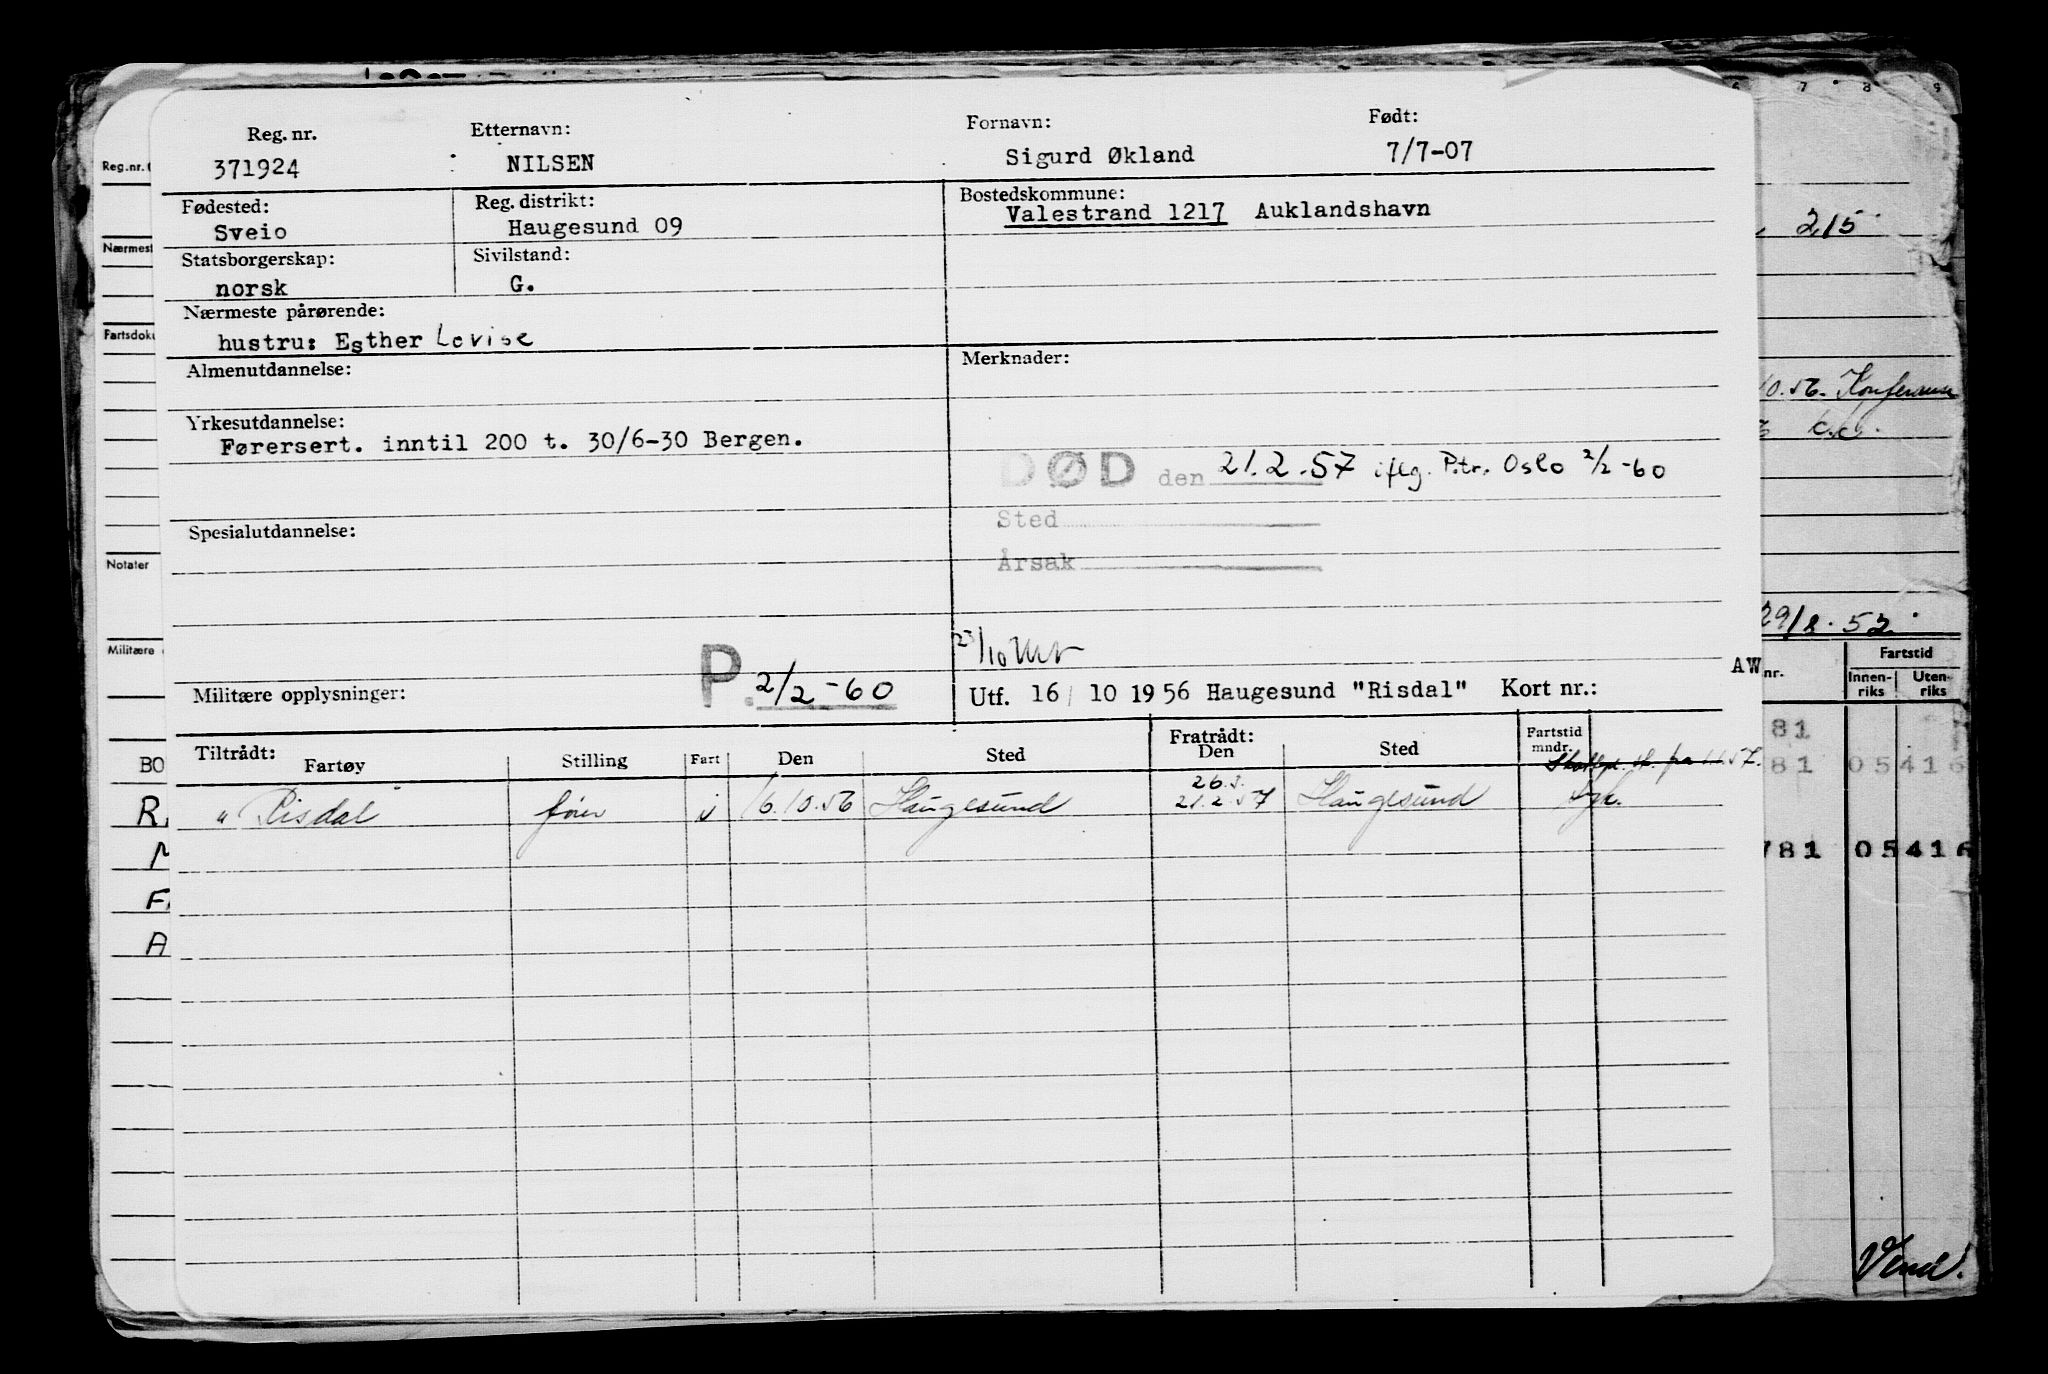 Reg. nr. Etternavn: Fornavn: Født:
371924 NILSEN Sigurd Økland 7/7-07
Fødested: Reg. distrikt: Bostedskommune:
Sveio Haugesund 09 Valestrand 1217 Auklandshavn
Statsborgerskap: Sivilstand:
norsk G.
Nærmeste pårørende:
hustru: Esther Lovise
Almenutdannelse: Merknader:
Yrkesutdannelse:
Førersert. inntil 200 t. 30/6-30 Bergen.
DØD den 21.2.57 iflg. P.tr. Oslo 2/2-60
Sted
Spesialutdannelse:
Årsak
23/10
Militære opplysninger: P. 2/2-60 Utf. 16/ 10 1956 Haugesund "Risdal" Kort nr.:
Tiltrådt: Fratrådt: Fartstid
Fartøy Stilling Fart Den Sted Den Sted mndr.
26.3.
" Risdal" fører i 16.10.56 Haugesund 21.2.57 Haugesund
Reg.nr.
Nærmest
Fartsdoku
Notater
Militære
BO
R
F
A
6 7 8 9
215
10.56. Konferanse
c.c.
29/8.52.
AW nr. Fartstid
Innen- Uten-
riks riks
81
81 05416
781 05416
Vend!